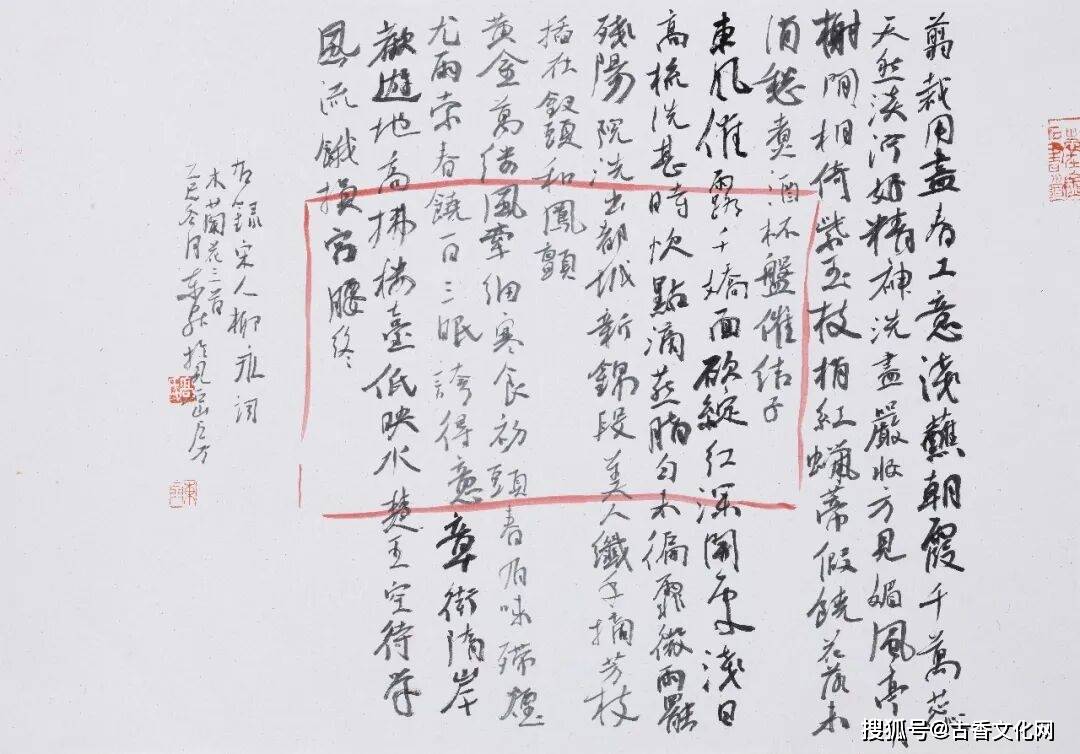 翦裁用盡春工意淺蘸朝霞千萬蕊
天然淡泞好精神洗盡嚴妝方見媚風亭月
榭閒相倚紫玉枝梢紅蠟蒂假饒花落未
消愁煑酒杯盤催結子
東風催露千嬌面欲綻紅深開處淺日
高梳洗甚時忺點滴燕脂匀未徧霏微雨罷
殘陽院洗出都城新錦段美人纖手摘芳枝
插在釵頭和鳳顫
黃金萬縷風牽細寒食初頭春有味殢煙
尤雨索春饒一日三眠誇得意章街隋岸
歡遊地高拂樓臺低映水楚王空待学
風流餓損宮腰終
右錄宋人柳永詞
木蘭花三首
乙巳冬月
搜狐号@古香文化网